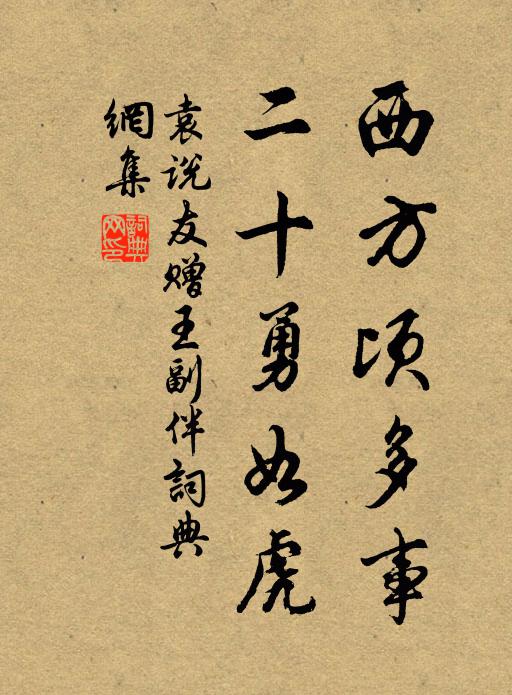 西方頃多事
二十勇如虎
袁説友贈王副伴詞典
網集
詞典
网印